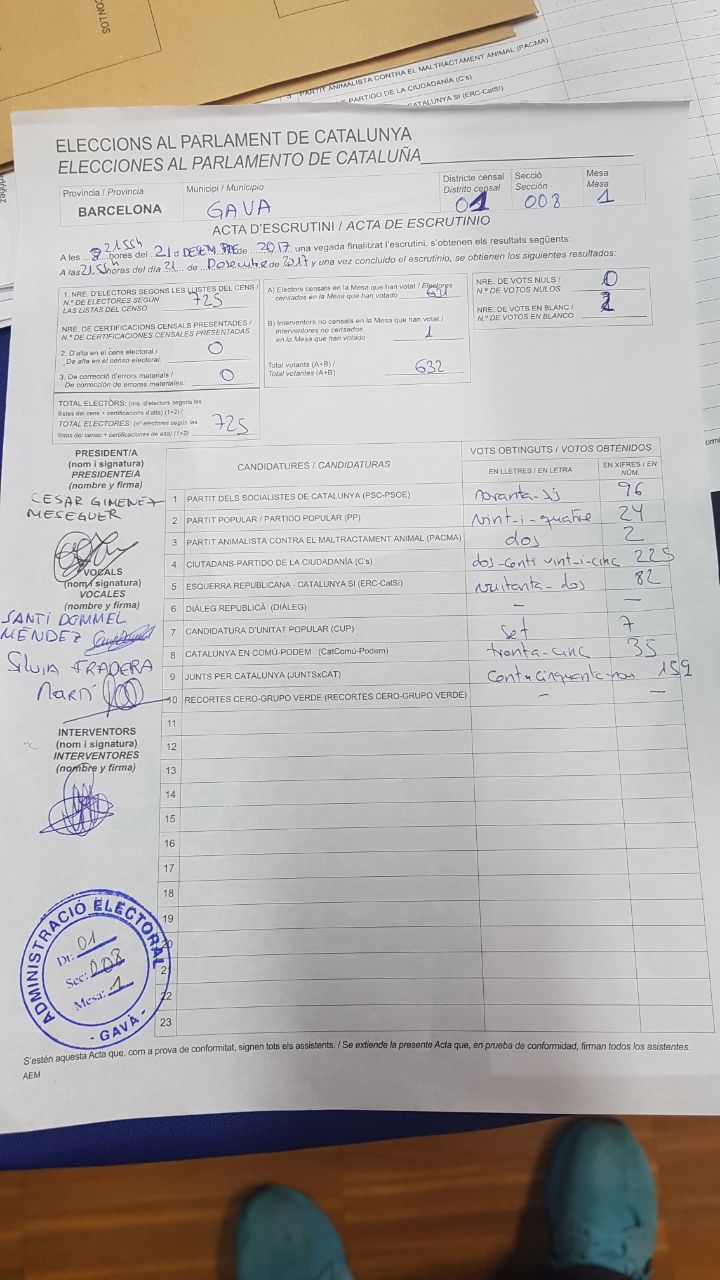 CON LOS
PARTIT ANIMALISTA CONTRA EL MALTRACTAMENT ANIMAL (PACMA)
PARTIDO DE LA CIUDADANÍA (C's)
CATALUNYA SI (ERC-CatSí)
ELECCIONS AL PARLAMENT DE CATALUNYA
ELECCIONES AL PARLAMENTO DE CATALUÑA
Província / Provincia
BARCELONA
Municipi / Municipio
GAVA
Districte censal
Distrito censal
01
Secció
Sección
008
Mesa
Mesa
1
ACTA D'ESCRUTINI / ACTA DE ESCRUTINIO
A les 21:55h hores del 21 d DESEMBRE de 2017, una vegada finalitzat l'escrutini, s'obtenen els resultats següents:
A las 21:55h horas del día 21 de Desembre de 2017 y una vez concluido el escrutinio, se obtienen los siguientes resultados:
1. NRE. D'ELECTORS SEGONS LES LLISTES DEL CENS /
N.º DE ELECTORES SEGÚN
LAS LISTAS DEL CENSO
725
NRE. DE CERTIFICACIONS CENSALS PRESENTADES /
N.º DE CERTIFICACIONES CENSALES PRESENTADAS
2. D'alta en el cens electoral /
De alta en el censo electoral:
0
3. De correcció d'errors materials /
De corrección de errores materiales:
0
TOTAL ELECTORS: (nre. d'electors segons les
llistes del cens + certificacions d'alta) (1+2) /
TOTAL ELECTORES: (nº electores según las
listas del censo + certificaciones de alta) (1+2)
725
A) Electors censats en la Mesa que han votat / Electores
censados en la Mesa que han votado
631
B) Interventors no censats en la Mesa que han votat /
Interventores no censados
en la Mesa que han votado
1
Total votants (A+B) /
Total votantes (A+B)
632
NRE. DE VOTS NULS /
N.º DE VOTOS NULOS
0
NRE. DE VOTS EN BLANC /
N.º DE VOTOS EN BLANCO
2
PRESIDENT/A
(nom i signatura)
PRESIDENTE/A
(nombre y firma)
CESAR GIMENEZ
MESEGUER
VOCALS
(nom i signatura)
VOCALES
(nombre y firma)
SANTI DOMMEL
MÉNDEZ
SILVIA FRADERA
MARTÍ
INTERVENTORS
(nom i signatura)
INTERVENTORES
(nombre y firma)
CANDIDATURES / CANDIDATURAS
VOTS OBTINGUTS / VOTOS OBTENIDOS
EN LLETRES / EN LETRA
EN XIFRES / EN NÚM.
1 PARTIT DELS SOCIALISTES DE CATALUNYA (PSC-PSOE) noranta-sis 96
2 PARTIT POPULAR / PARTIDO POPULAR (PP) vint-i-quatre 24
3 PARTIT ANIMALISTA CONTRA EL MALTRACTAMENT ANIMAL (PACMA) dos 2
4 CIUTADANS-PARTIDO DE LA CIUDADANÍA (C's) dos-cents vint-i-cinc 225
5 ESQUERRA REPUBLICANA - CATALUNYA SI (ERC-CatSí) vuitanta-dos 82
6 DIÀLEG REPUBLICÀ (DIÀLEG) — —
7 CANDIDATURA D'UNITAT POPULAR (CUP) set 7
8 CATALUNYA EN COMÚ-PODEM (CatComú-Podem) trenta-cinc 35
9 JUNTS PER CATALUNYA (JUNTSxCAT) cent cinquanta-nou 159
10 RECORTES CERO-GRUPO VERDE (RECORTES CERO-GRUPO VERDE) — —
11
12
13
14
15
16
17
18
19
20
21
22
23
ADMINISTRACIÓ ELECTORAL
Dt: 01
Sec: 008
Mesa: 1
- GAVÀ -
S'estén aquesta Acta que, com a prova de conformitat, signen tots els assistents. / Se extiende la presente Acta que, en prueba de conformidad, firman todos los asistentes.
AEM